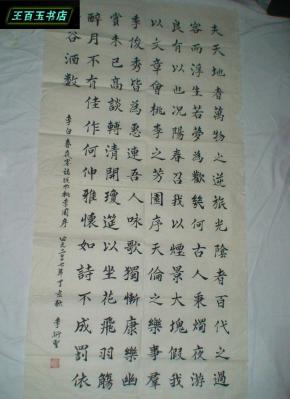 王百玉书店
夫天地者萬物之逆旅光陰者百代之過
客而浮生若夢為歡幾何古人秉燭夜游
良有以也況陽春召我以煙景大塊假我
以文章會桃李之芳園序天倫之樂事羣
季俊秀皆為惠連吾人咏歌獨慚康樂幽
賞未已高談轉清開瓊筵以坐花飛羽觴
醉月不有佳作何伸雅懷如詩不成罰依
谷酒數
李白春夜宴諸從弟桃李園序